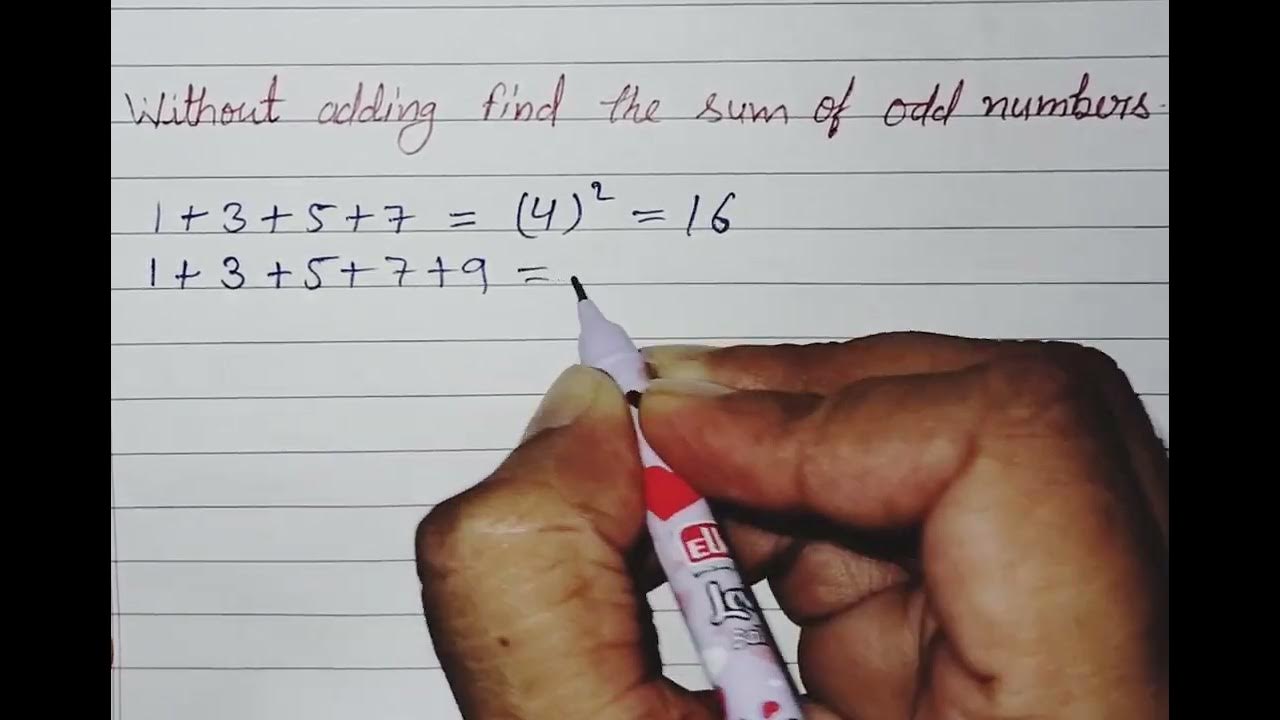 Without adding find the sum of odd numbers.
1 + 3 + 5 + 7 = (4)² = 16
1 + 3 + 5 + 7 + 9 =